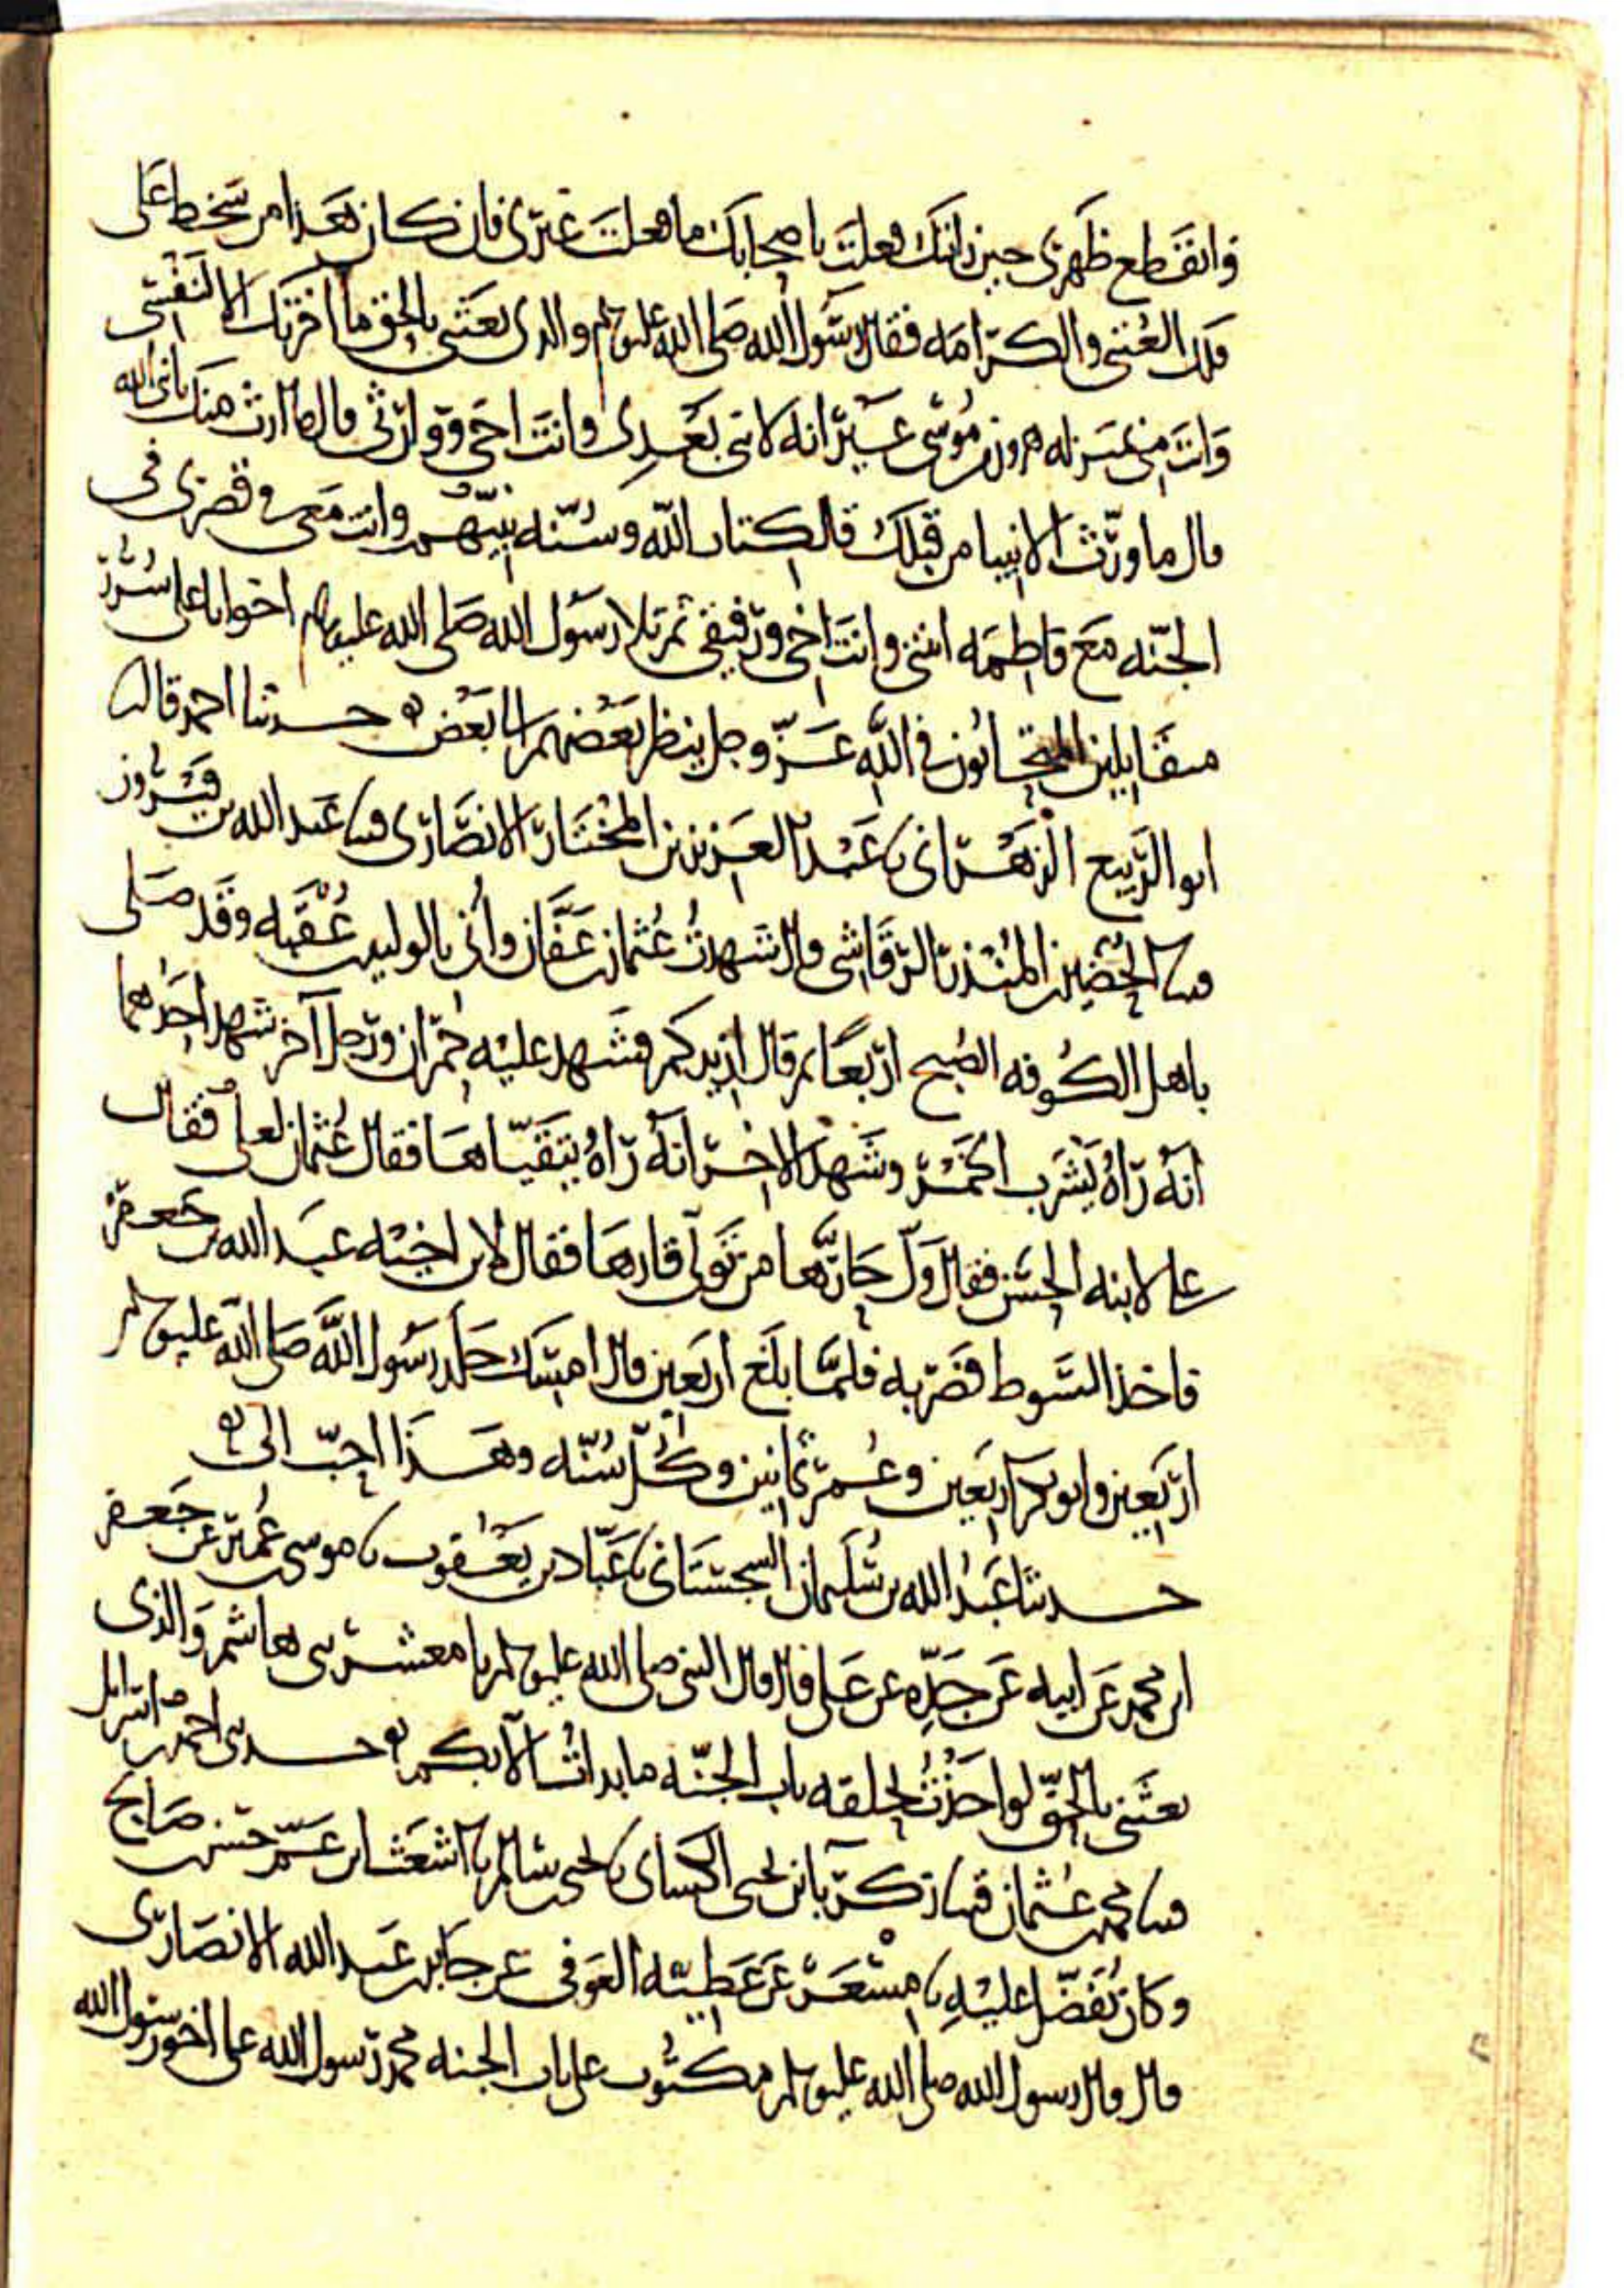 وانقطع ظهرى حين رايتك فعلت باصحابك ما فعلت غيرى فان كان هذا من سخط على
فلك العتبى والكرامه فقال رسول الله صلى الله عليه وسلم والذى بعثنى بالحق ما اخرتك الا لنفسى
وانت منى بمنزله هرون من موسى غير انه لا نبى بعدى وانت اخى ووارثى قال وما ارث منك يا نبى الله
قال ما ورث الانبيا من قبلك قال كتاب الله وسنه نبيهم وانت معى فى قصرى فى
الجنه مع فاطمه ابنتى وانت اخى ورفيقى ثم تلا رسول الله صلى الله عليه وسلم اخوانا على سرر
متقابلين المتحابون فى الله عز وجل ينظر بعضهم الى بعض ه حدثنا احمد قال
ابو الربيع الزهرانى نا عبد العزيز بن المختار الانصارى قثنا عبد الله بن فيروز
قثنا الحضين بن المنذر الرقاشى قال شهدت عثمان بن عفان واتى بالوليد بن عقبه وقد صلى
باهل الكوفه الصبح اربعا ثم قال ازيدكم فشهد عليه حمران ورجل آخر شهد احدهما
انه رآه يشرب الخمر وشهد الاخر انه رآه يتقياها فقال عثمان لعلى فقال
على لابنه الحسن فقال ول حارها من تولى قارها فقال لابن اخيه عبد الله بن جعفر
فاخذ السوط فضربه فلما بلغ اربعين قال امسك جلد رسول الله صلى الله عليه وسلم
اربعين وابو بكر اربعين وعمر ثمانين وكل سنه وهذا احب الى ه
حدثنا عبد الله بن سليمان السجستانى نا عباد بن يعقوب نا موسى بن عمير عن جعفر
ابن محمد عن ابيه عن جده عن على قال قال النبى صلى الله عليه وسلم يا معشر بنى هاشم والذى
بعثنى بالحق لو اخذت بحلقه باب الجنه ما بدات الا بكم ه حدثنى احمد بن اسرائل
قثنا محمد بن عثمان قثنا زكريا بن يحيى الكسائى نا يحيى بن سالم نا اشعث ابن عم حسن بن صالح
وكان يفضل عليه نا مسعر عن عطيه العوفى عن جابر بن عبد الله الانصارى
قال قال رسول الله صلى الله عليه وسلم مكتوب على باب الجنه محمد رسول الله على اخو رسول الله